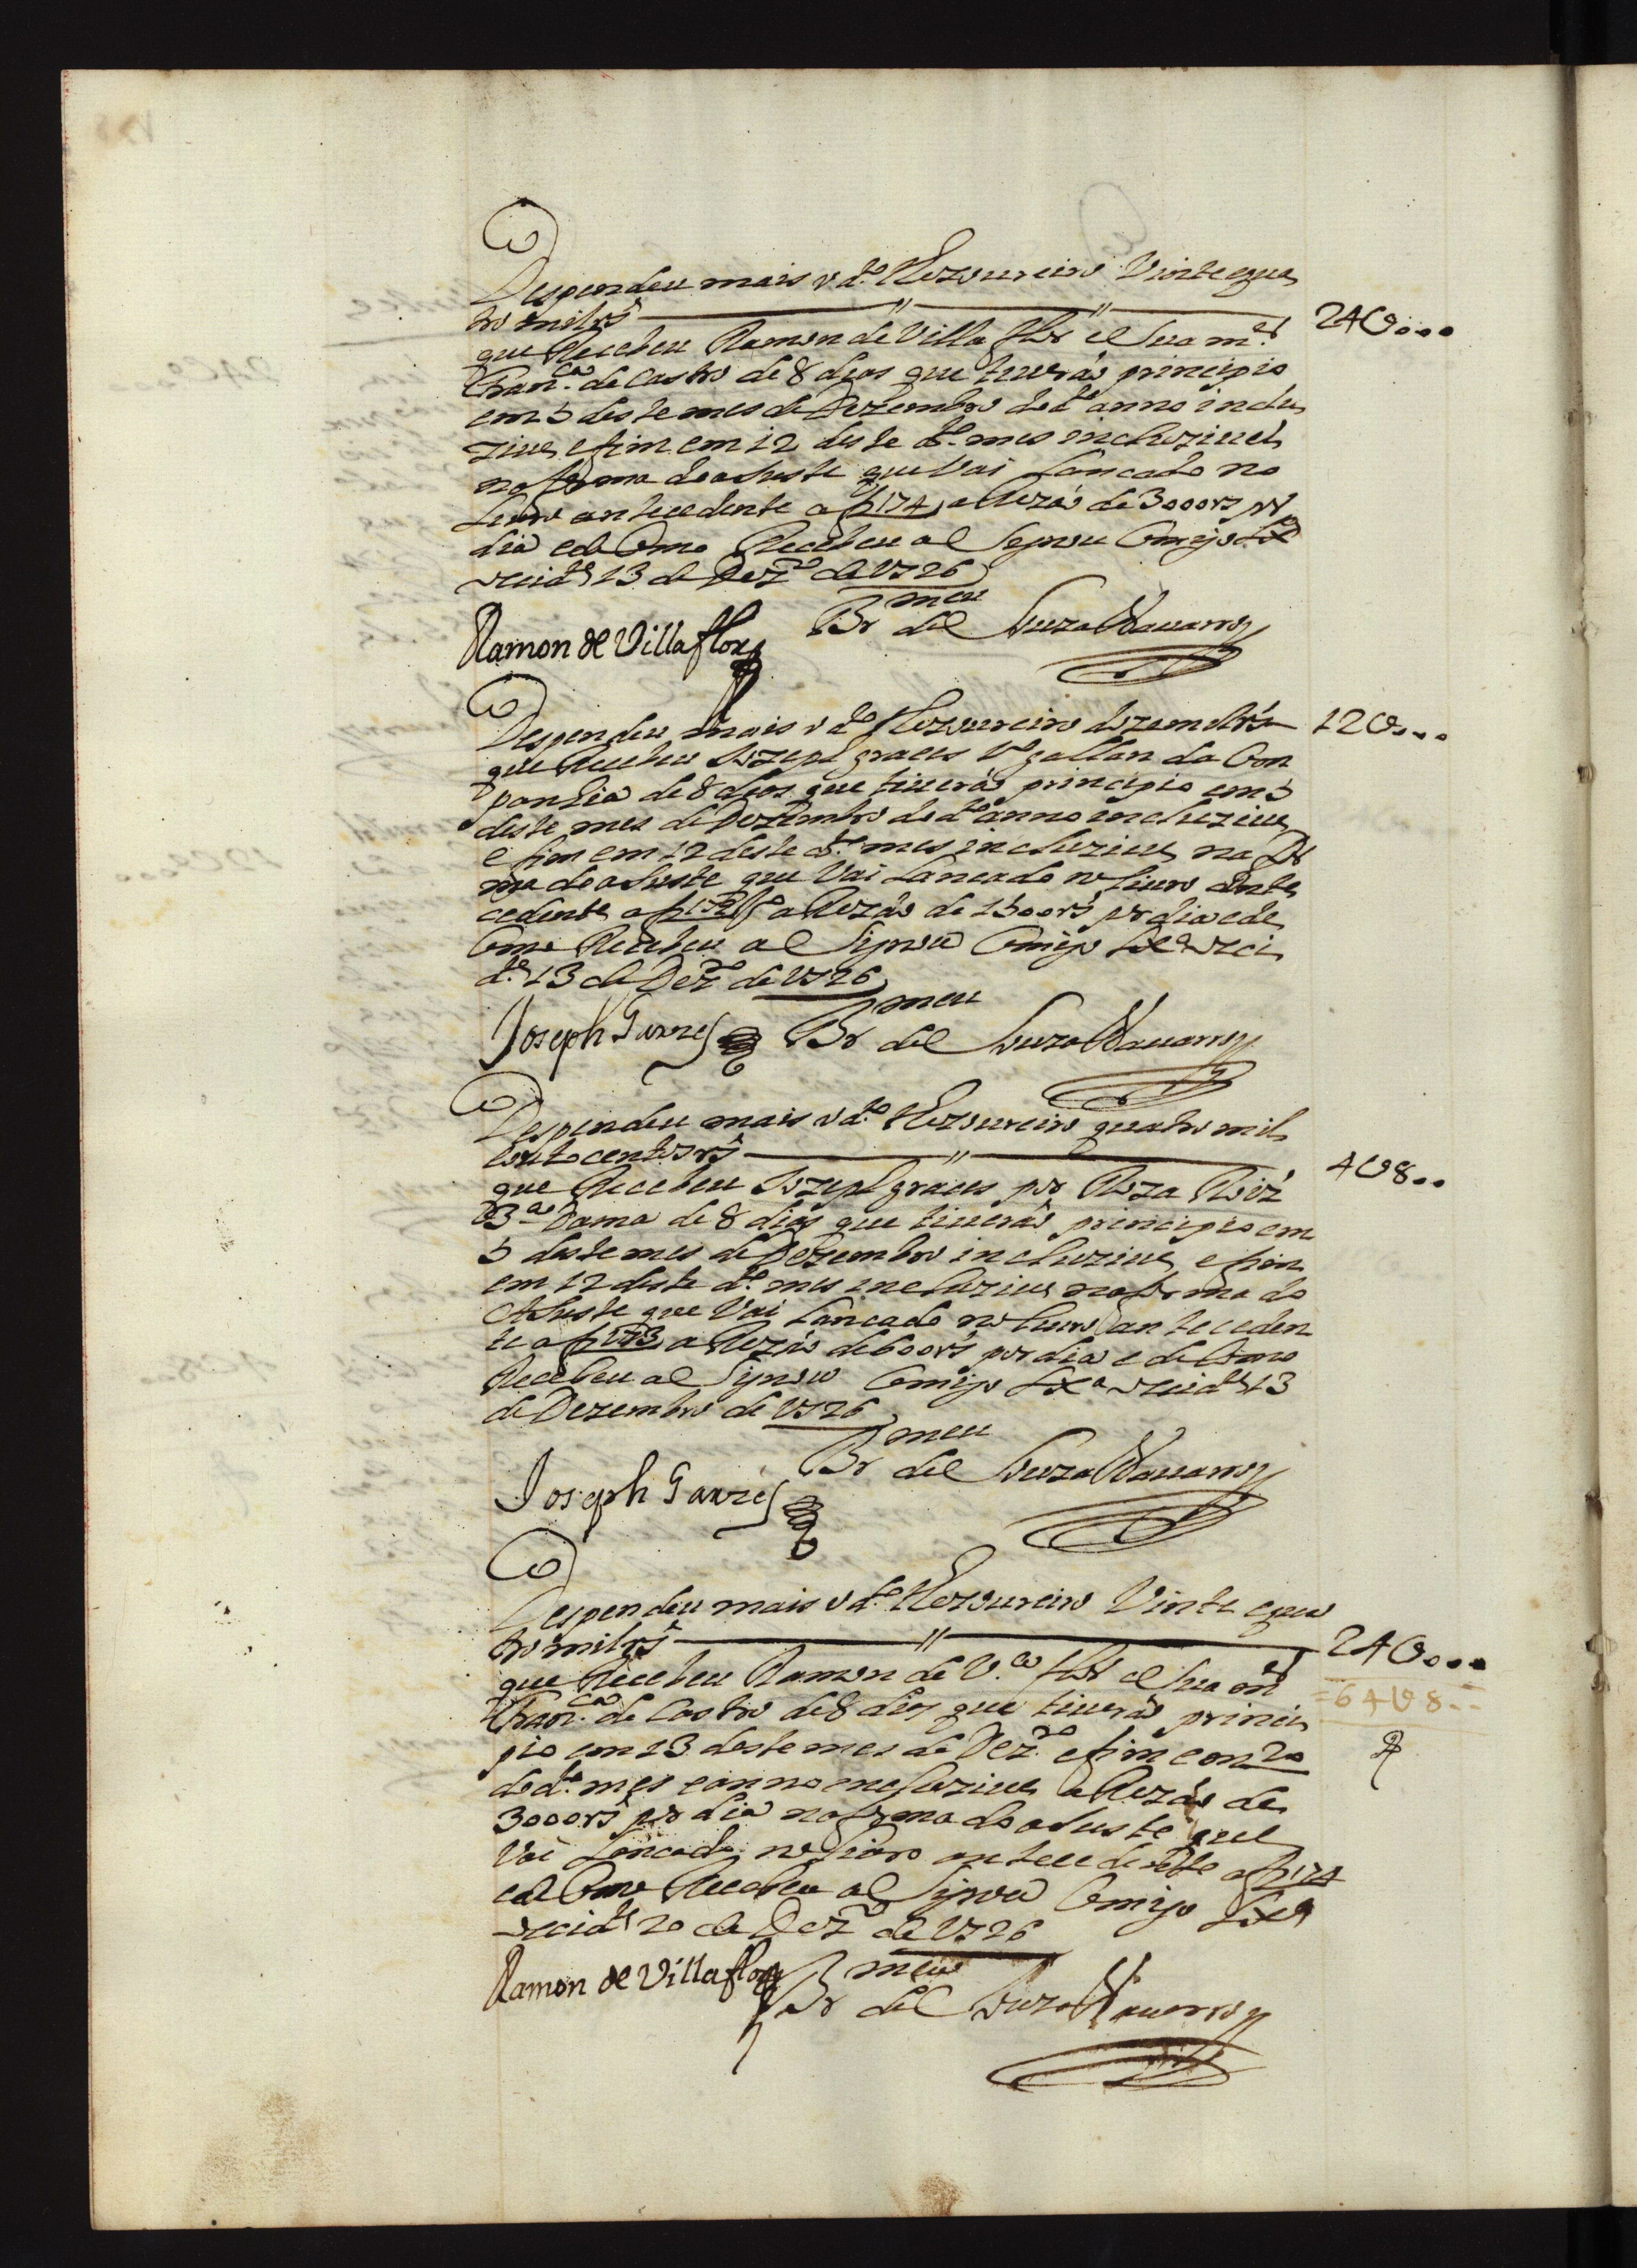 Despendeu mais o d.º Thezoureiro Vinte e qua
tro mil rs̃ 24U000
que Recebeu Ramon de Villa flor e Sua m.er
Fran.ca de Castro de 8 dias que tiuerão principio
em 5 deste mes de Dezembro do d.º anno inclu
ziue e fim em 12 deste d.º mes incluziue
na forma do aJuste que Vai Lancado no
Liuro antecedente a f 174 a Rezão de 3000rs por
dia e de Como Recebeu asignou Comigo Lxª
occid.l 13 de Dezº de 1726
meu
de Souza Nauarro
Ramon de Villaflor
Despendeu mais o d.º Thezoureiro doze mil rs̃ 12U000
que Recebeu Jozeph garces 1º gallan da Com
panhia de 8 dias que tiuerão principio em 5
deste mes de Dezembro do d.º anno incluziue
e fim em 12 deste d.º mes incluziue na for
ma do aJuste que Vai Lancado no Liuro ante
cedente a f a Rezão de 1500rs̃ por dia e de
Como Recebeu asignou Comigo Lxª occi
d.l 13 de Dezº de 1726
meu
de Souza Nauarro
Joseph Garces
Despendeu mais o d.º Thezoureiro quatro mil
e outo centos rs̃ 4U800
que Recebeu Jozeph graces por Roza Roiz
3ª Dama de 8 dias que tiuerão principio em
5 deste mes de Dezembro incluziue e fim
em 12 deste d.º mes incluziue na forma do
aJuste que Vai Lancado no Liuro anteceden
te a f 173 a Rezão de 600rs̃ por dia e de Como
Recebeu asignou Comigo Lxª occid.l 13
de Dezembro de 1726
meu
de Souza Nauarro
Joseph Garces
Despendeu mais o d.º Thezoureiro Vinte e qua
tro mil rs̃ 24U000
que Recebeu Ramon de V.ª flor e Sua m.er
=64U8--
Fran.ca de Castro de 8 dias que tiuerão princi
pio em 13 deste mes de Dezº e fim em 20
do d.º mes e anno incluziue a Rezão de
3000rs̃ por dia na forma do aJuste que
Vai Lancado no Liuro antecedente a f 174
e de Como Recebeu asignou Comigo Lxª
occid.l 20 de Dezº de 1726
meu
de Souza Nauarro
Ramon de Villaflor